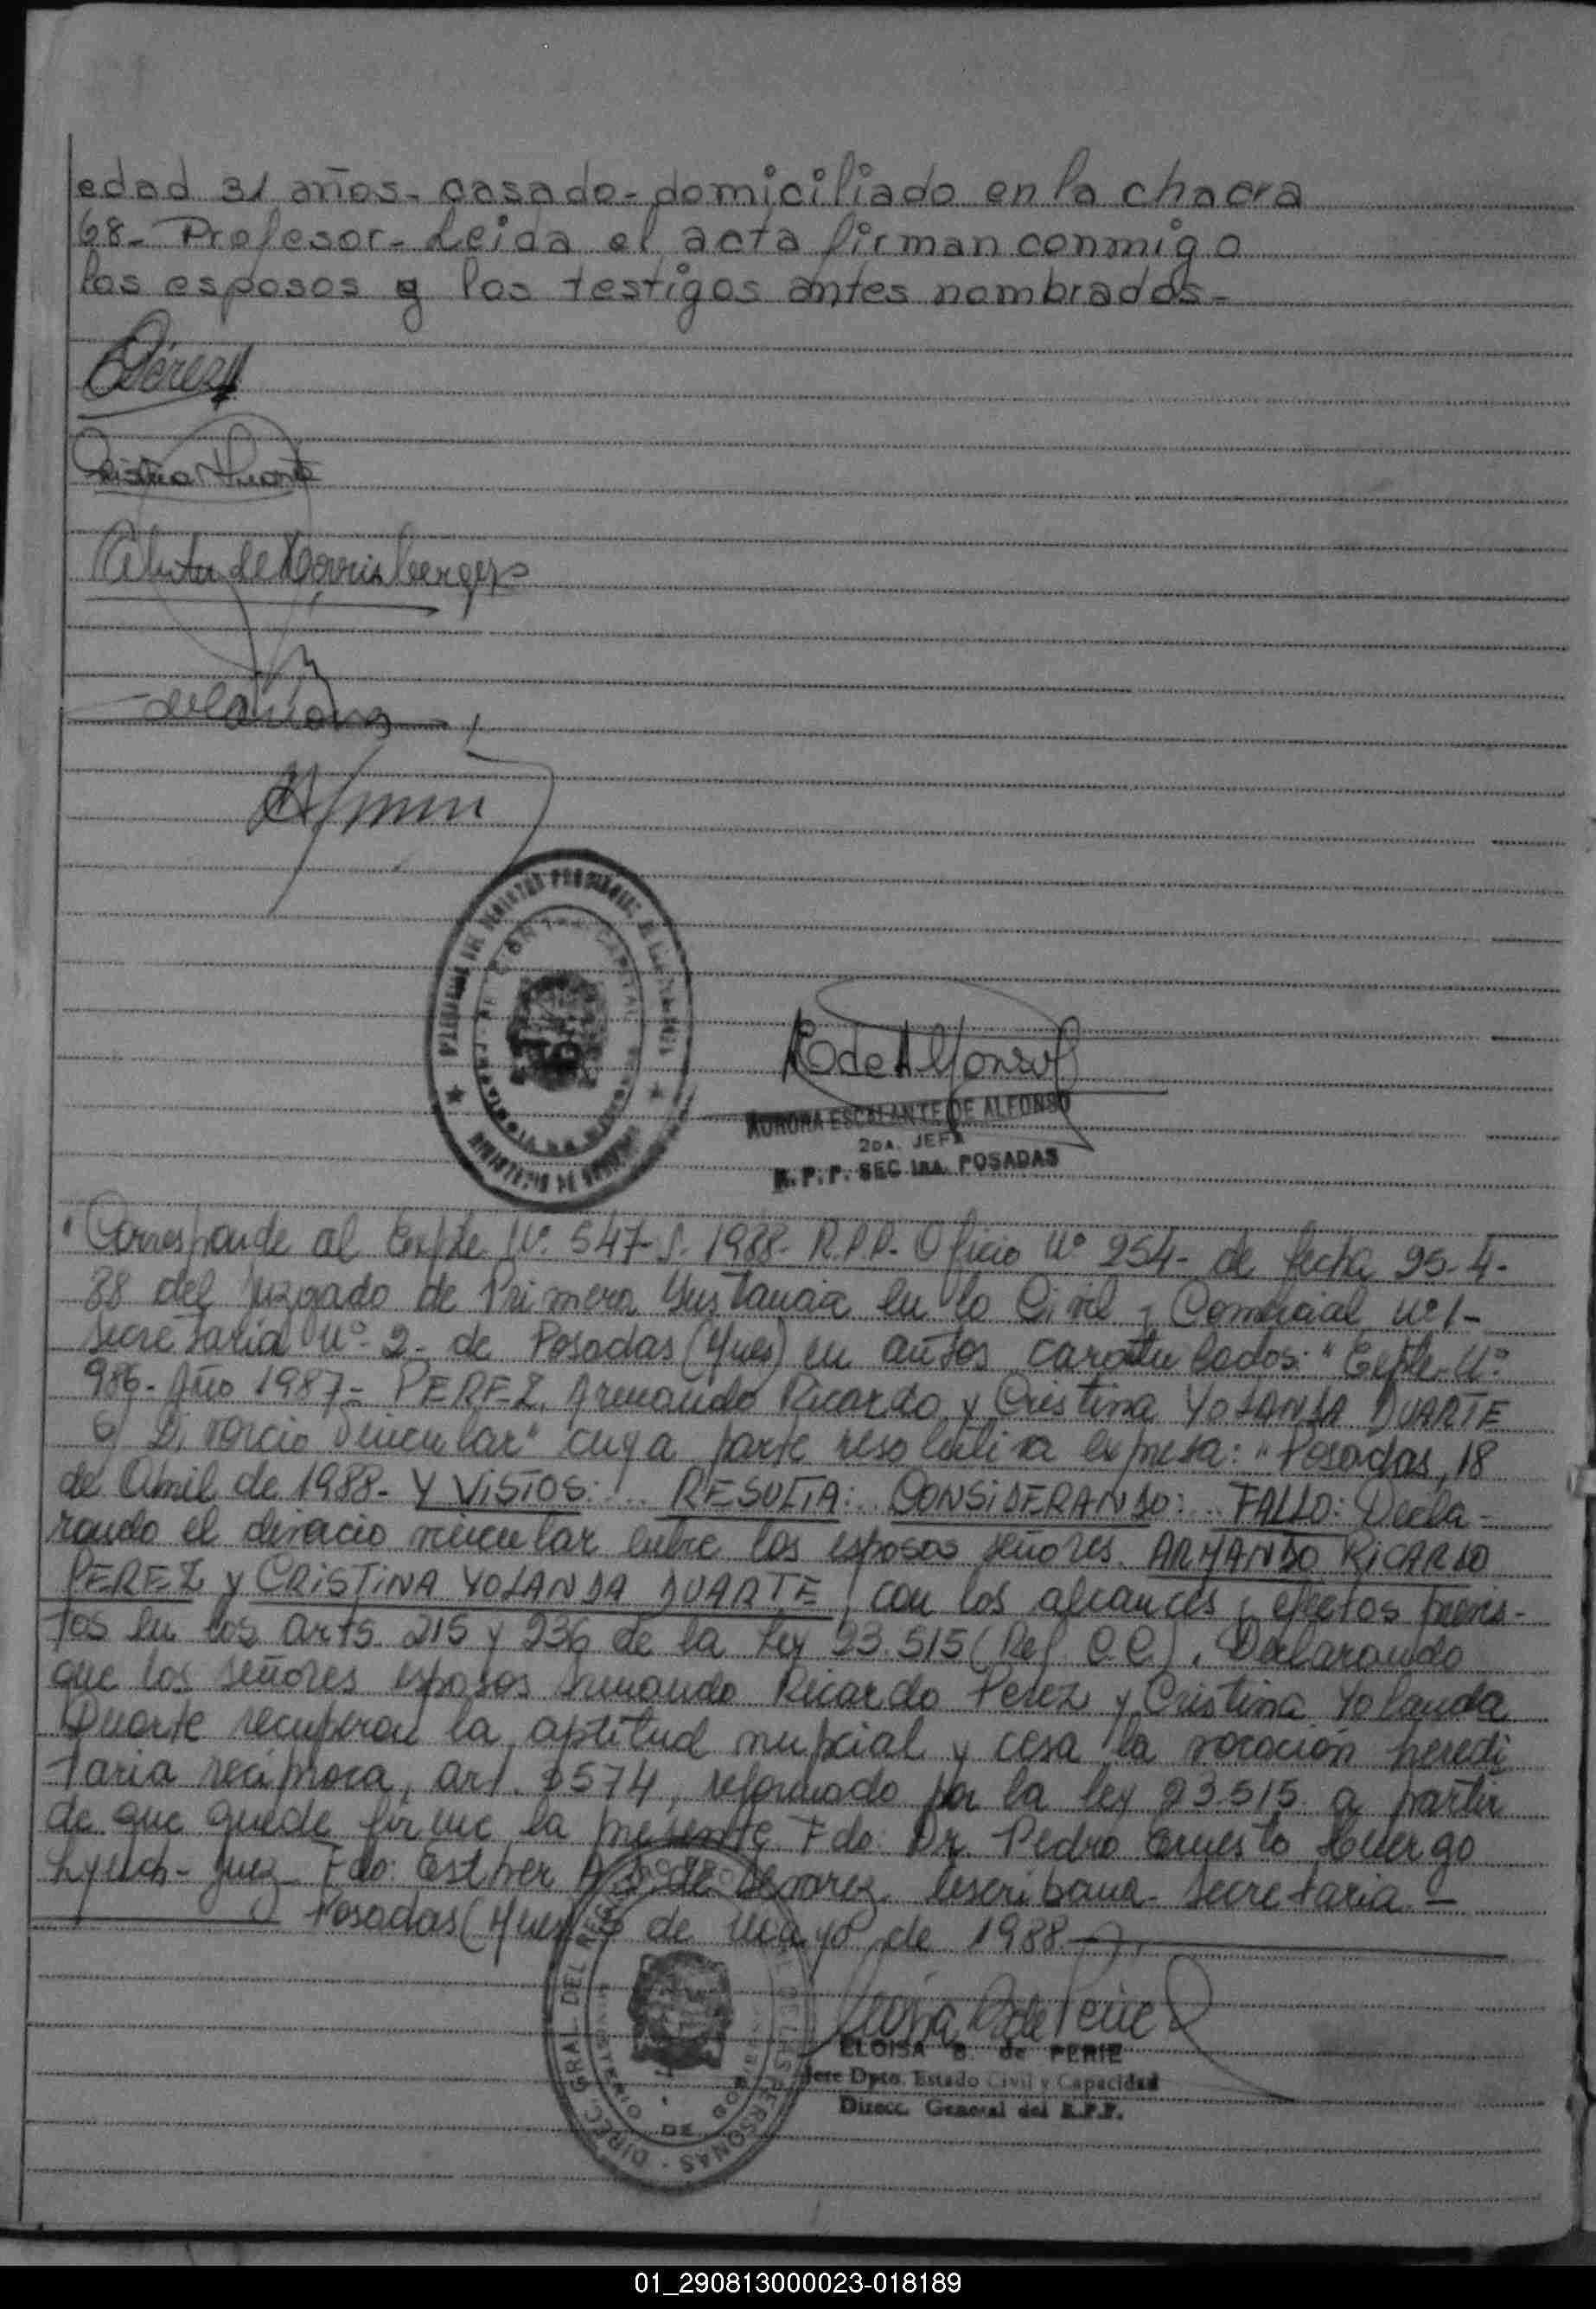 edad 31 años- casado- domiciliado en la chacra
68- Profesor- Leida el acta firman conmigo
los esposos y los testigos antes nombrados-
Pérez
Cristina Duarte
AURORA ESCALANTE DE ALFONSO
2DA. JEFA
R.P.P. SEC 1RA. POSADAS
Corresponde al Expte Nº 547-S. 1988- R.P.P. Oficio Nº 254- de fecha 25-4-
88 del juzgado de Primera Instancia en lo Civil y Comercial nº 1-
secretaria Nº 2- de Posadas (Mnes) en autos caratulados: "Expte. Nº
986- Año 1987- PEREZ, Armando Ricardo y Cristina YOLANDA DUARTE
s/ Divorcio Vincular" cuya parte resolutiva expresa: "Posadas, 18
de Abril de 1988- Y VISTOS:... RESULTA:.. CONSIDERANDO:... FALLO: Decla-
rando el divorcio vincular entre los esposos señores ARMANDO RICARDO
PEREZ y CRISTINA YOLANDA DUARTE, con los alcances y efectos previs-
tos en los arts. 215 y 236 de la Ley 23.515 (Ref. C.C.). Declarando
que los señores esposos Armando Ricardo Perez y Cristina Yolanda
Duarte recuperan la aptitud nupcial y cesa la vocación heredi
taria recíproca, art. 3574, reformado por la ley 23.515 a partir
de que quede firme la presente. Fdo: Dr. Pedro Ernesto
Lynch- Juez Fdo: Esther escribana- secretaria.-
Posadas (Mnes) de mayo de 1988.-
ELOISA B. de PERIE
Jefe Dpto. Estado Civil y Capacidad
Direcc. General del R.P.P.
DIREC. GRAL. DEL REG PERSONAS
01_290813000023-018189